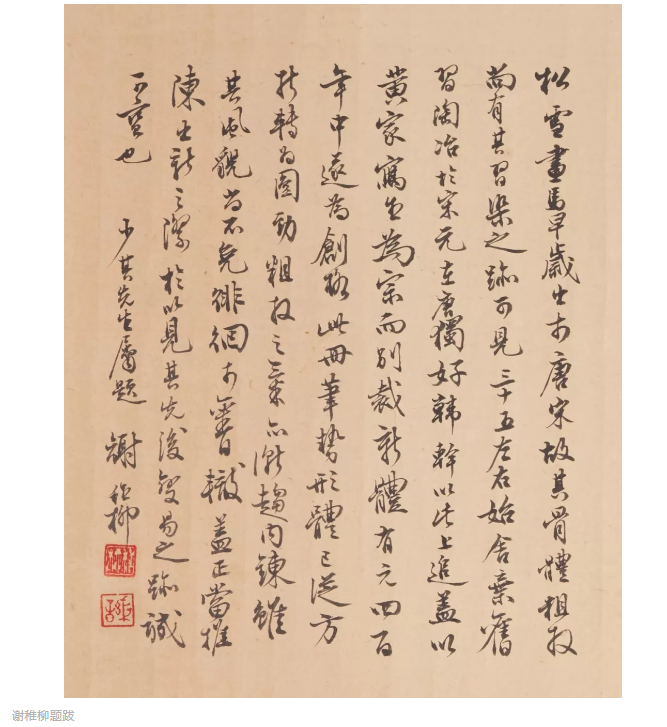 松雪畫馬早歲出於唐宋故其骨體粗放
尚有其習染之跡可見三十五左右始舍棄舊
習陶冶於宋元在唐獨好韓幹以此上追蓋以
黃家寫生為宗而別裁新體有元四百
年中遂為創格此冊筆勢形體已從方
折轉為圓勁粗放之氣亦漸趨內鍊雖
其風貌尚不免徘徊於舊轍蓋正當推
陳出新之際於以見其先後變易之跡誠
可寶也 少其先生屬題 謝稚柳
谢稚柳题跋